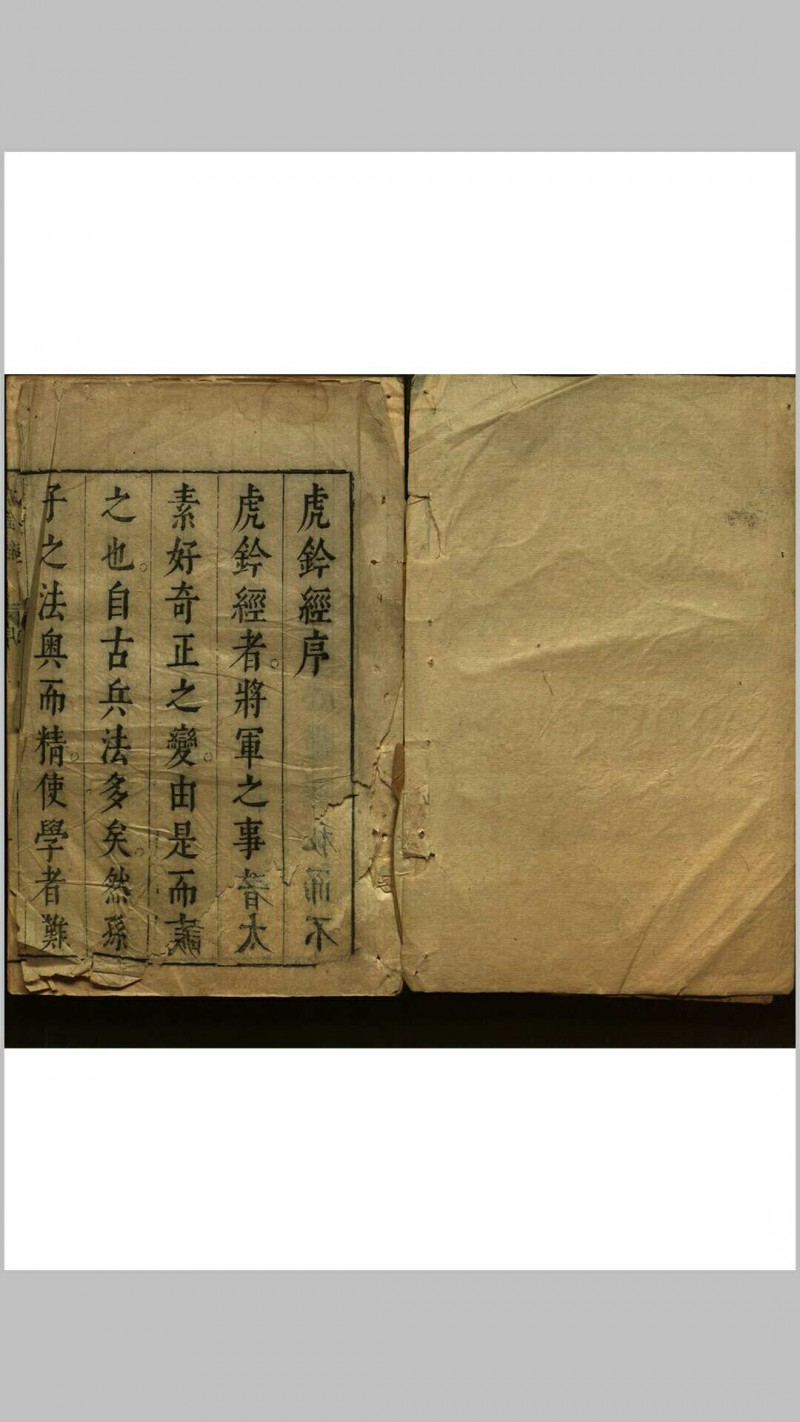 虎鈐經序 而不
虎鈐經者。將軍之事 太
素好奇正之變。由是而
之也。自古兵法多矣。然孫
子之法奧而精。使學者難